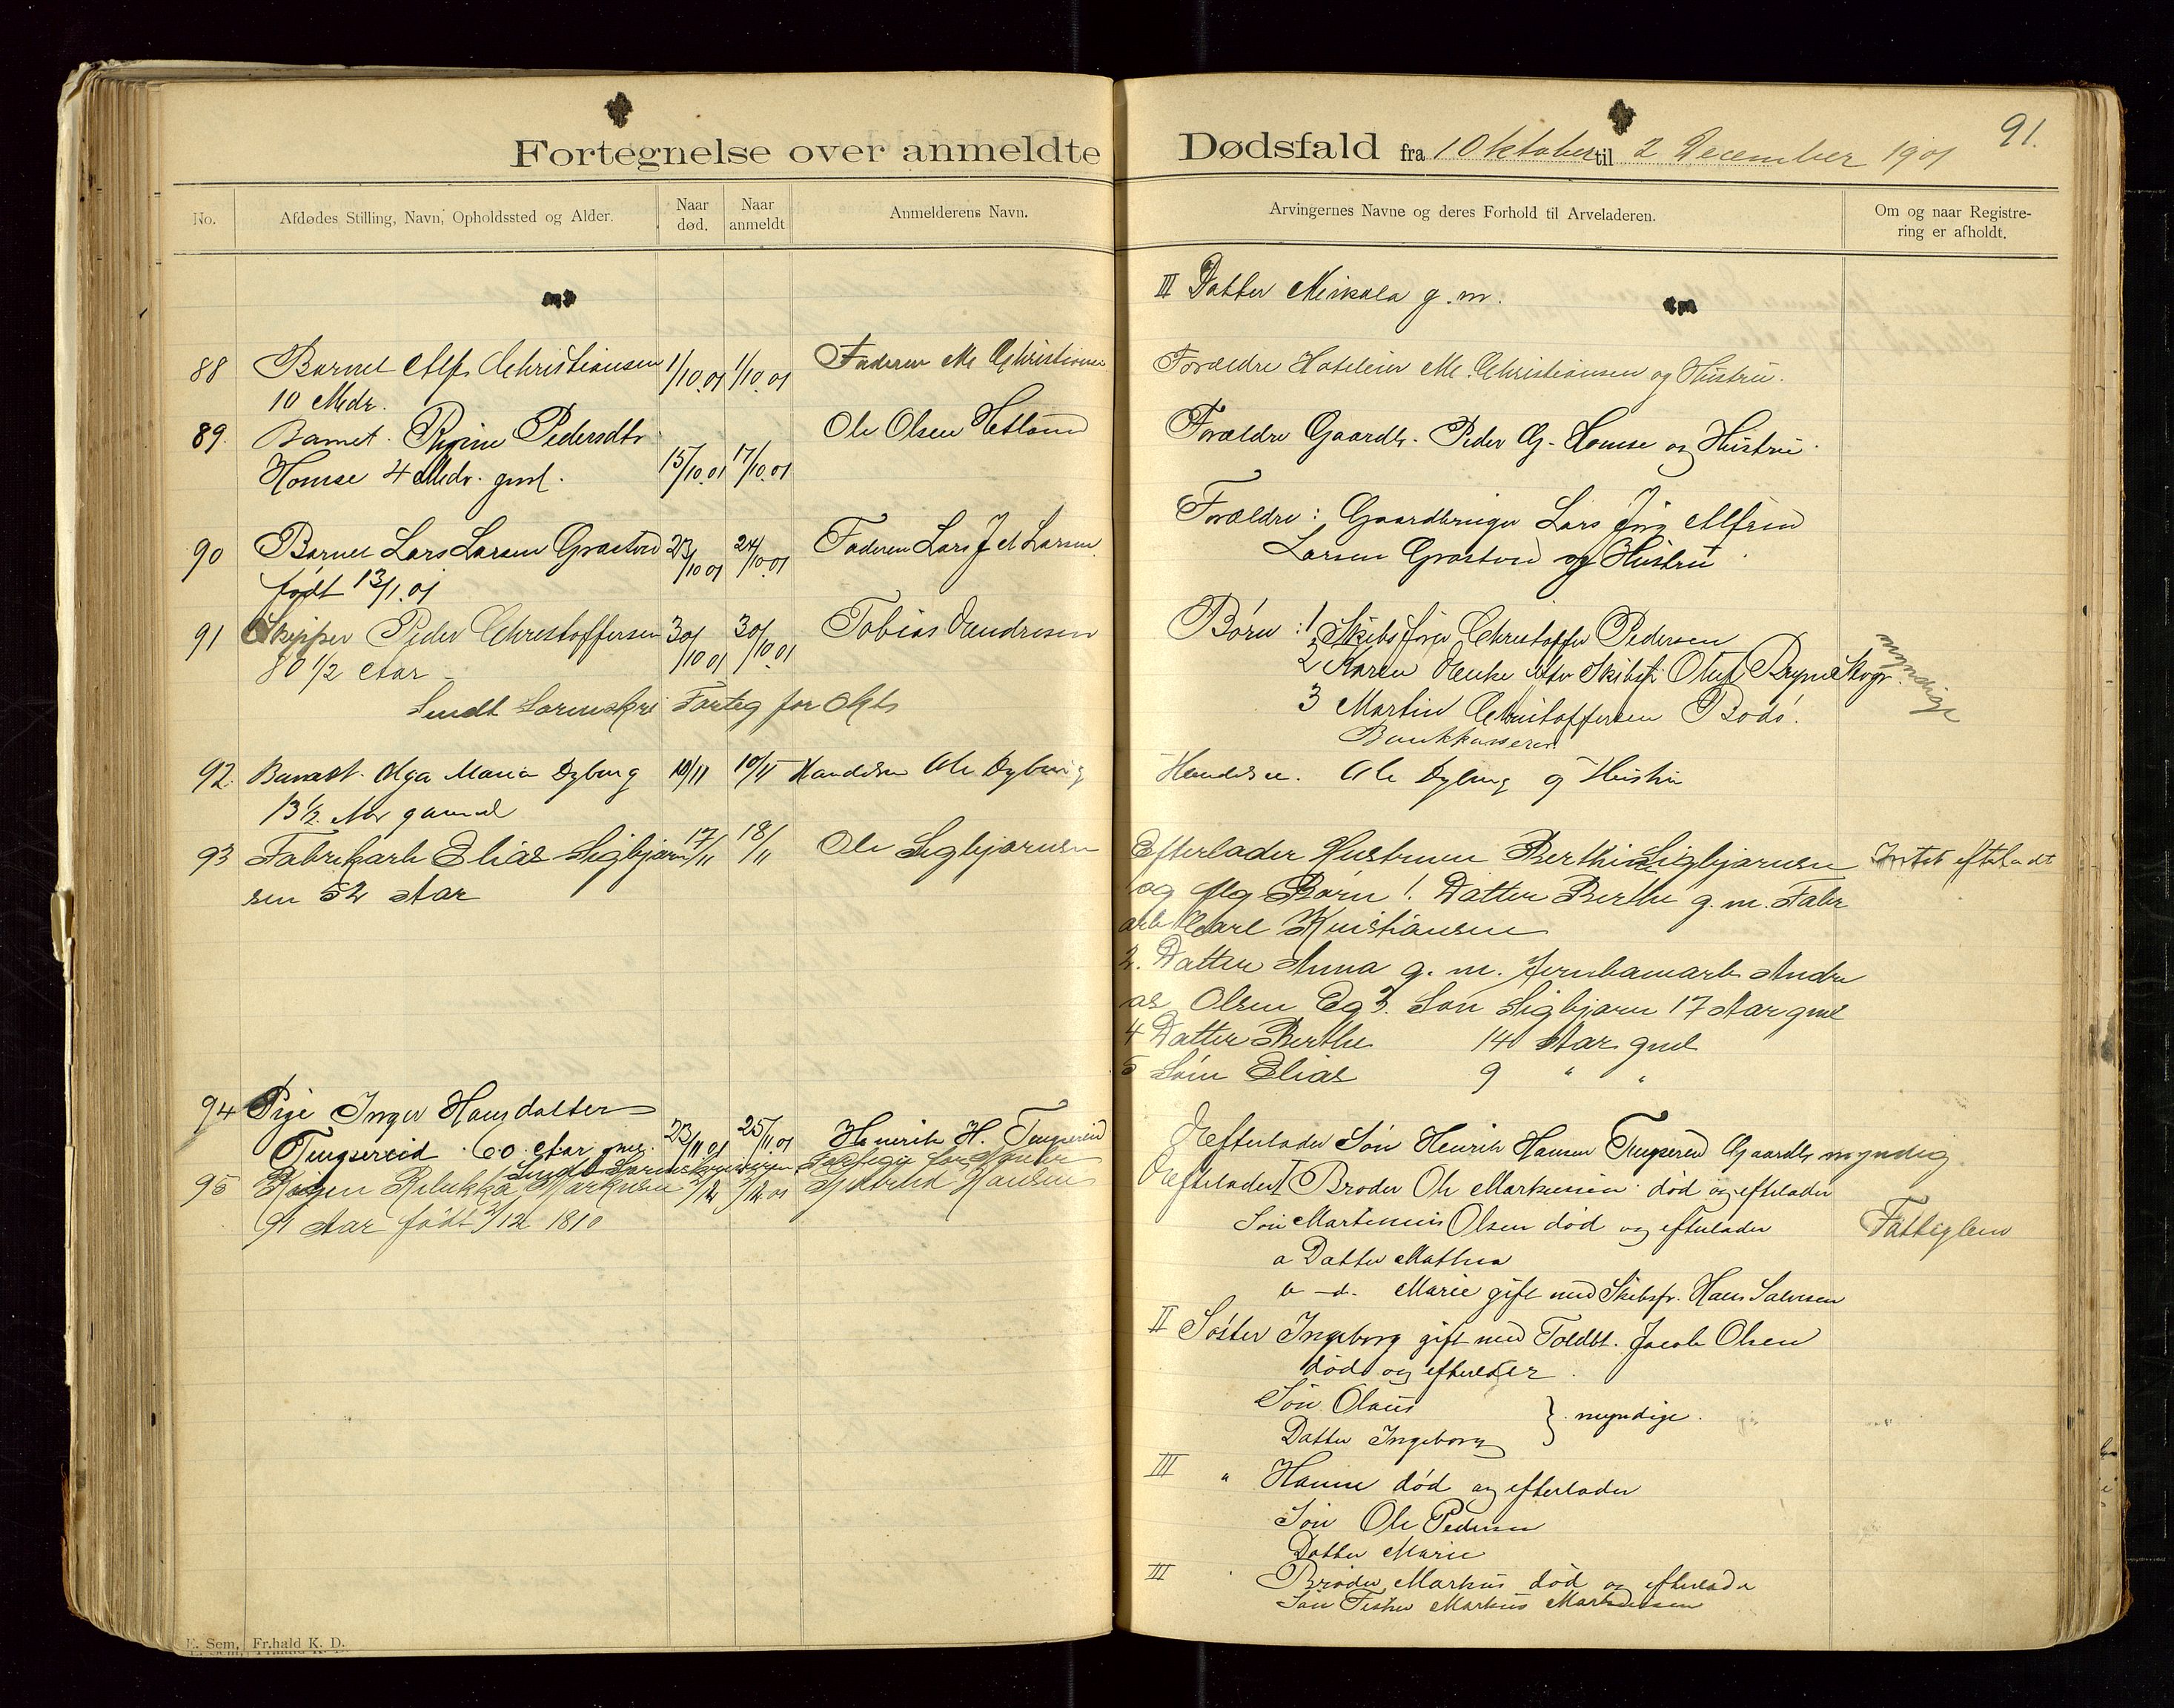 Fortegnelse over anmeldte Dødsfald fra 1 Oktober til 2 December 1901
91.
No.
Afdødes Stilling, Navn, Opholdssted og Alder.
Naar død.
Naar anmeldt
Anmelderens Navn.
Arvingernes Navne og deres Forhold til Arveladeren.
Om og naar Registrering er afholdt.
III Datter Mikala g. m.
88 Barnet Alf Christiansen 1/10.01 1/10.01 Faderen M. Christiansen
10 Mdr.
Forældre Hoteleier M. Christiansen og Hustru.
89. Barnet Regine Pedersdtr Ole Olsen Hetland
Homse 4 Mdr. gml. 15/10.01 17/10.01
Forældre Gaardbr. Peder G. Homse og Hustru.
90 Barnet Lars Larsen 23/10 01 24/10.01 Faderen Lars J. A. Larsen
født 13/1.01
Forældre: Gaardbruger Lars Jørg Alfred
Larsen og Hustru.
91 Skipper Peder Christoffersen 30/10 01 30/10.01 Tobias Endresen
80 1/2 Aar
Sendt Sorenskr Forteg for Okt.
Børn: 1 Skibsfører Christoffer Pedersen
2 Karen Enke efter Skibsf. Oluf Bryn
3 Martin Christoffersen Bodø.
Bankkasserer
myndige
92. Olga Maria Dyburg 10/11 10/11 Handelsm Ole Dyburg
13 1/2 Aar gammel
Handelsm. Ole Dyburg og Hustru
93 Fabrikarb Elias Sigbjørn 17/11 18/11 Ole Sigbjørnsen
sen 52 Aar
Efterlader Hustruen Berthe Sigbjørnsen Intet efterladt
og flg Børn 1. Datter Berthe g. m. Fabr
arb Carl Kristiansen
2. Datter Anna g. m. Jernbanearb Andre
as Olsen Eg 3. Søn Sigbjørn 17 Aar gml
4 Datter Berthe 14 Aar gml
5 Søn Elias 9 " "
94 Pige Inger Hansdatter
Tengsereid 60 Aar gml. 23/11 01 25/11.01 Henrik H. Tengsereid
Sendt Sorenskriveren Fortegn for Novbr
Efterlader Søn Henrik Hansen Tengsereid Gaardbr myndig
95 Rebekka Markusen 2/12 2/12 01 Hansen
91 Aar født 2/12 1810
Efterlader I Broder Ole Markussen død og efterlader
Søn Martinius Olsen død og efterlader Fattiglem
a Datter Mathea
b - d. Marie gift med Skibsfr. Hans Salvesen
II Søster Ingeborg gift med Toldbt. Jacob Olsen
død og efterlader
Søn Olaus
Datter Ingeborg } myndige.
III " Hanne død og efterlader
Søn Ole Pedersen
Datter Marie
III Broder Markus død og efterlader
Søn Fisker Markus Markussen
E. Sem, Fr.hald K. D.